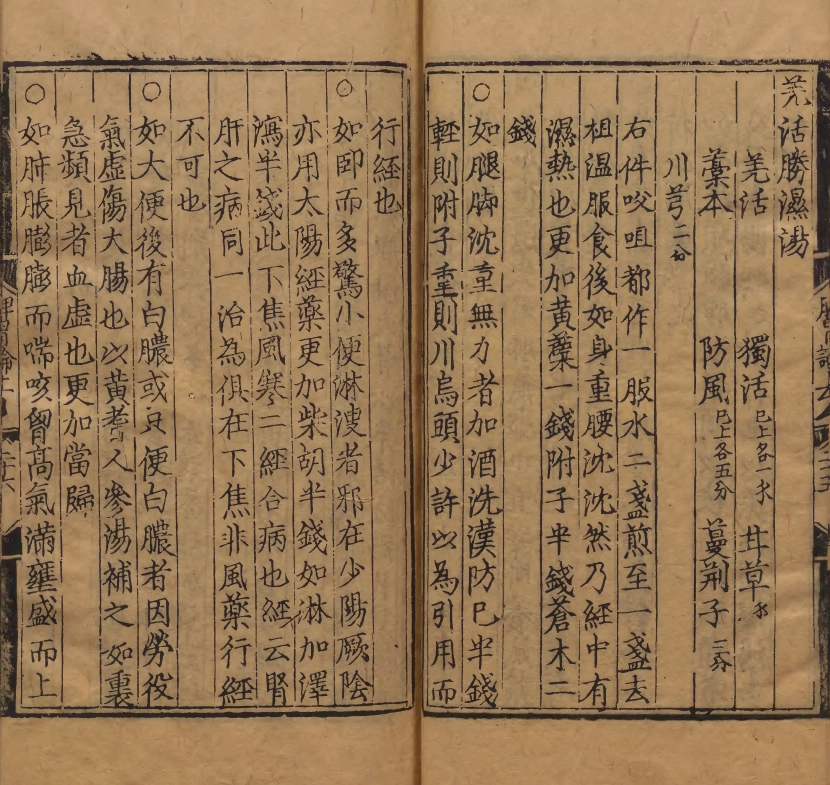 羌活勝濕湯
羌活　獨活已上各一　甘草
藁本　防風已上各五分　蔓荆子二分
川芎二分
右件㕮咀都作一服水二盞煎至一盞去
柤温服食後如身重腰沈沈然乃經中有
濕熱也更加黄蘗一錢附子半錢蒼术二
錢
○如腿脚沈重無力者加酒洗漢防巳半錢
輕則附子重則川烏頭少許以為引用而
行經也
○如卧而多驚小便淋溲者邪在少陽厥陰
亦用太陽經藥更加柴胡半錢如淋加澤
瀉半錢此下焦風寒二經合病也經云腎
肝之病同一治為俱在下焦非風藥行經
不可也
○如大便後有白膿或只便白膿者因勞役
氣虚傷大腸也以黄耆人參湯補之如裏
急頻見者血虚也更加當歸
○如肺脹膨膨而喘咳胷髙氣滿壅盛而上
脾胃論上
二十六